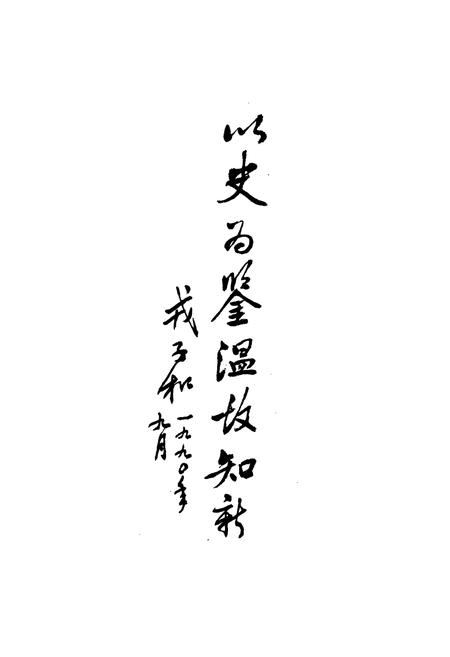 以史为鉴温故知新
戎子和
一九九〇年
九月